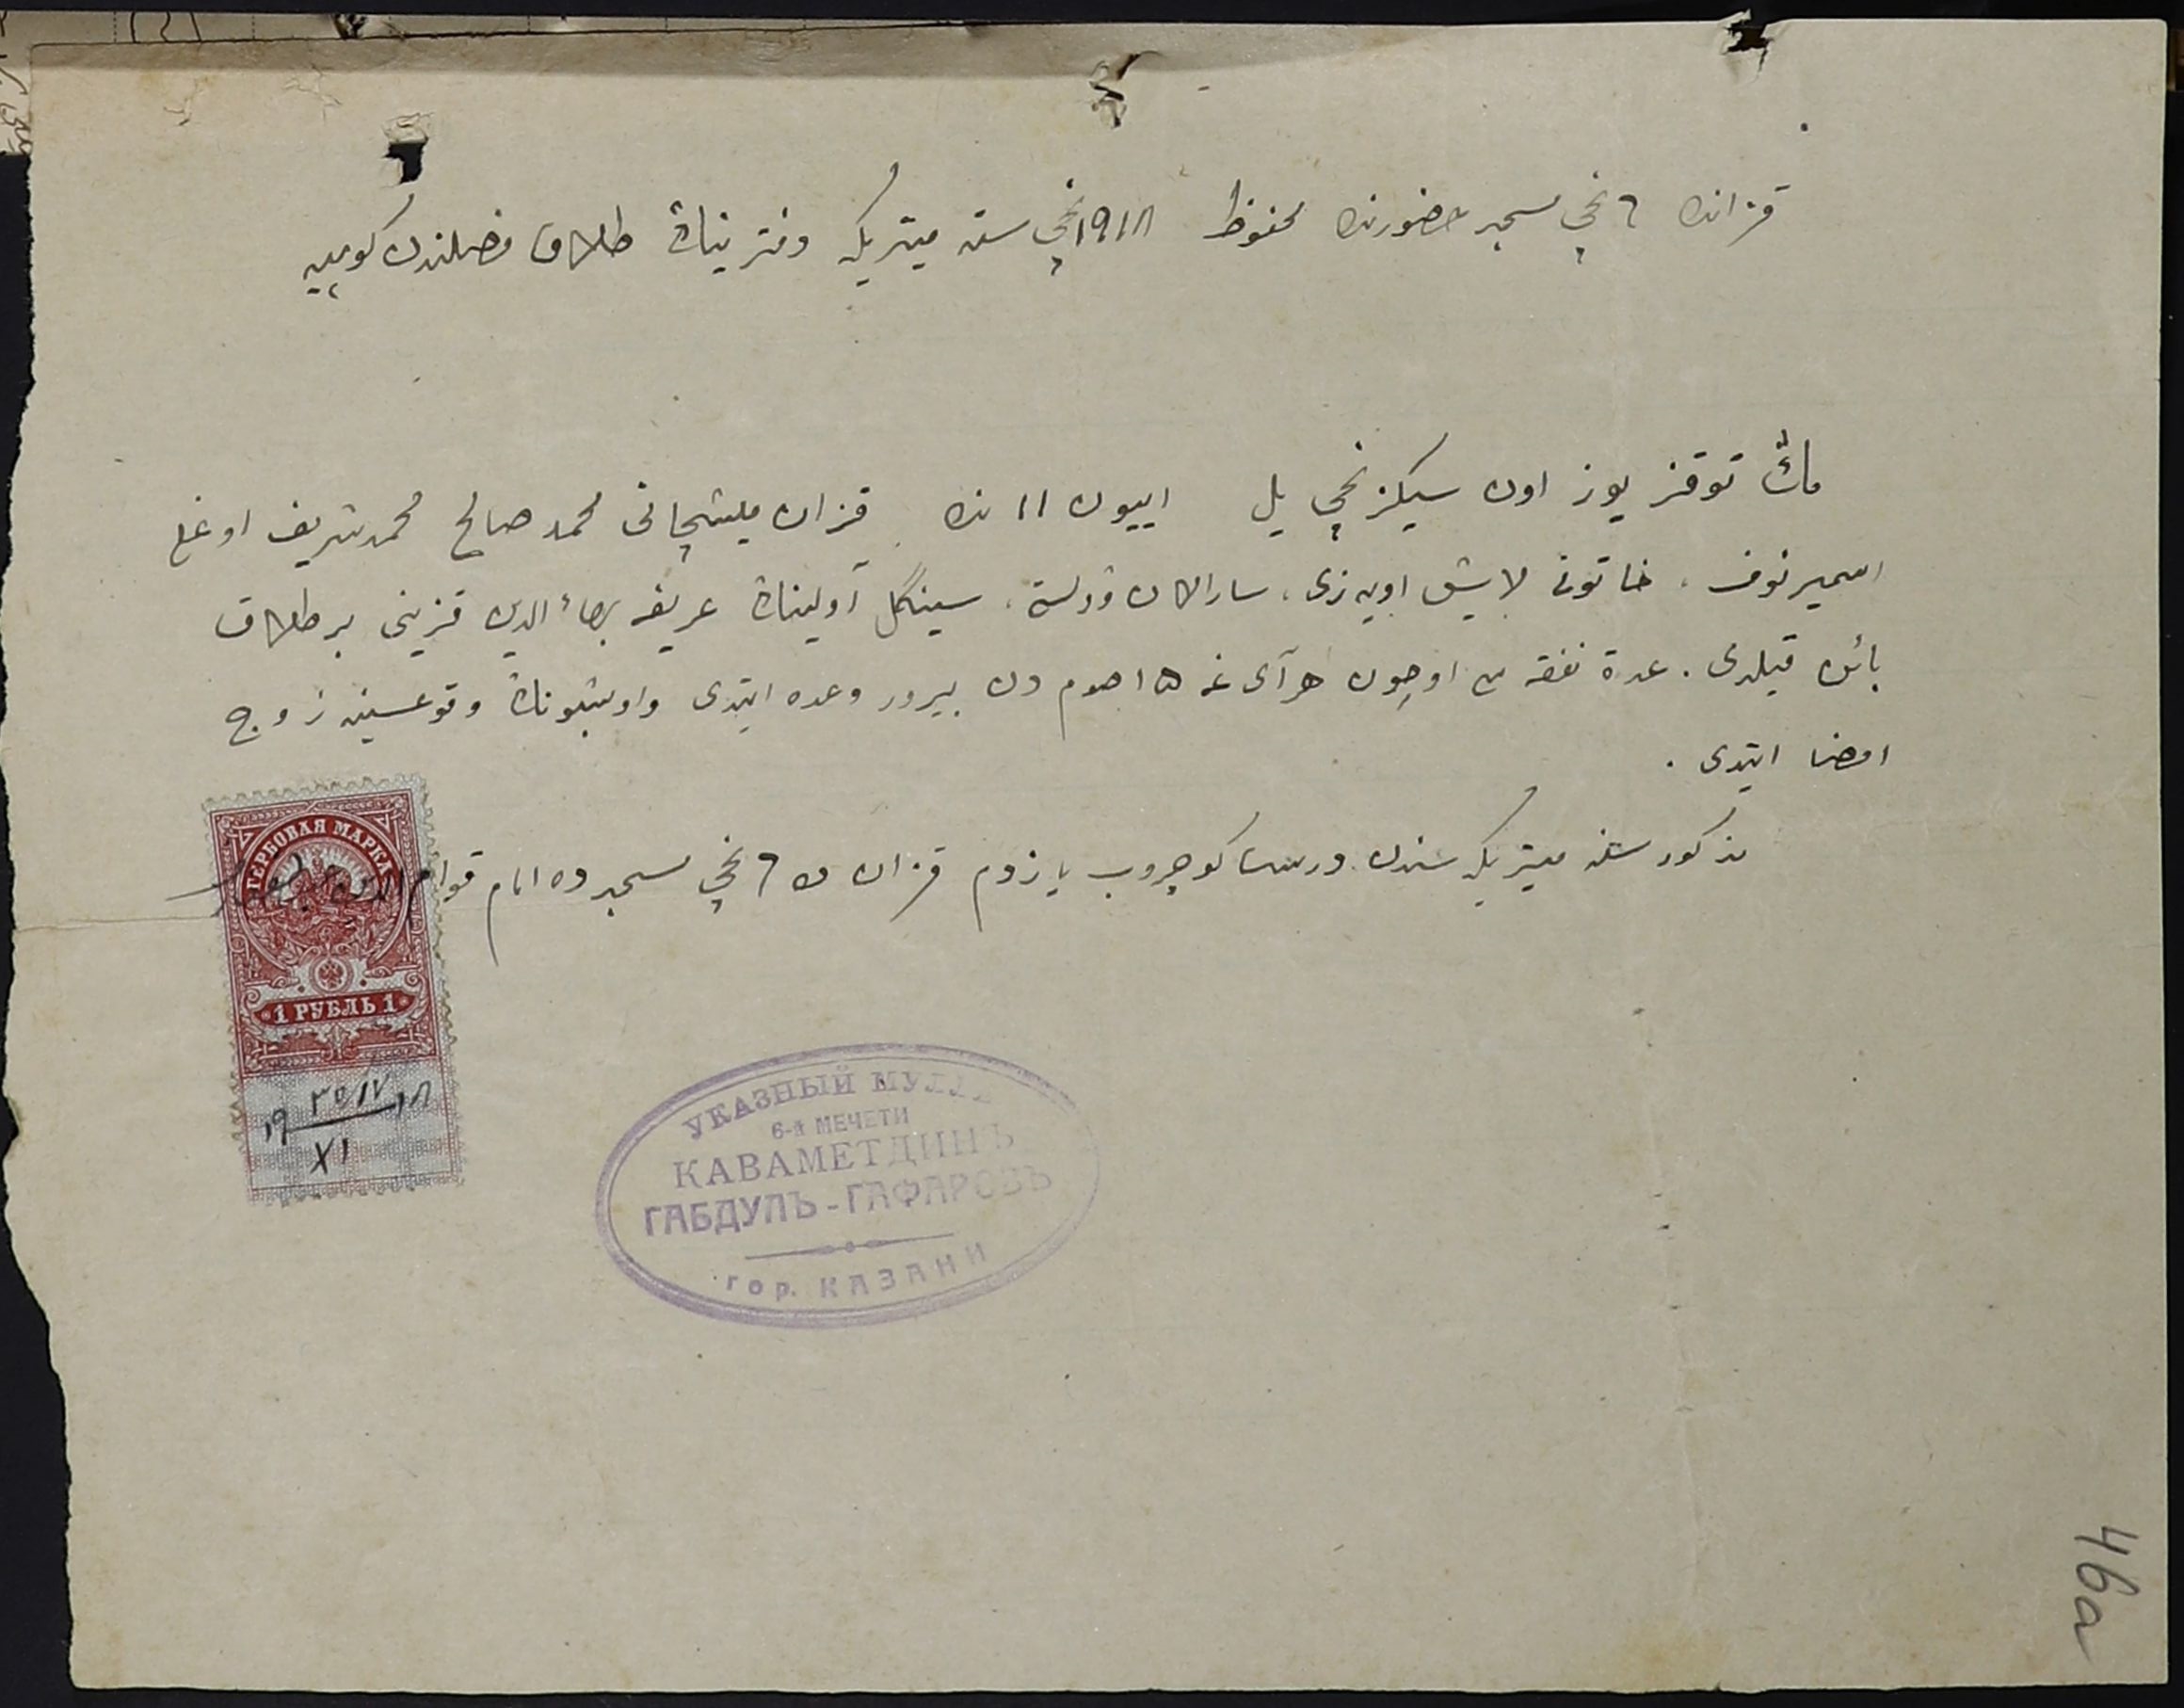 قزانده ٦ نچي مسجد حضورنده محفوظ ١٩١٨ نچي سنه ميتريكه دفترينڭ طلاق فصلندن كوپيه
ماڭ توقز يوز اون سيكزنچي يل اييون ١١ نده قزان ميشچانى محمد صالح محمدشريف اوغلى
اسميرنوف، خاتونى لايش اويه زى، سارالان وولستى، سينگل آولينڭ عريفه بهاء الدين قزينى بر طلاق
بائن قيلدى. عدة نفقه سى اوچون هر آى غه ١٥ صوم دن بيرور وعده ايتدى واوشبونڭ وقوعسينه زوج
امضا ايتدى.
مذكور سنه ميتريكه سندن درست كوچروب يازدم قزان ٦ نچي مسجدده امام قوام الدين
ГЕРБОВАЯ МАРКА
1 РУБЛЬ 1
١٩ ١٨
XI
УКАЗНЫЙ МУЛЛА
6-й МЕЧЕТИ
КАВАМЕТДИНЪ
ГАБДУЛЪ-ГАФАРОВЪ
гор. КАЗАНИ
46а